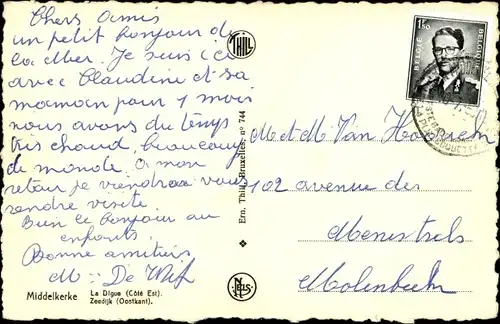 Chers amis
un petit bonjour de
la Mer. Je suis ici
avec Claudine et sa
maman pour 1 mois
nous avons du temps
très chaud, beaucoup
de monde. a mon
retour je viendrai vous
rendre visite.
Bien le bonjour au
enfants.
Bonne amitiés
M De
Middelkerke
La Digue (Côté Est).
Zeedijk (Oostkant).
THILL
Ern. Thill, Bruxelles, n° 744
NELS
1F50
BELGIE
BELGIQUE
M et Mr Van
102 avenue des
Menestrels
Molenbeek